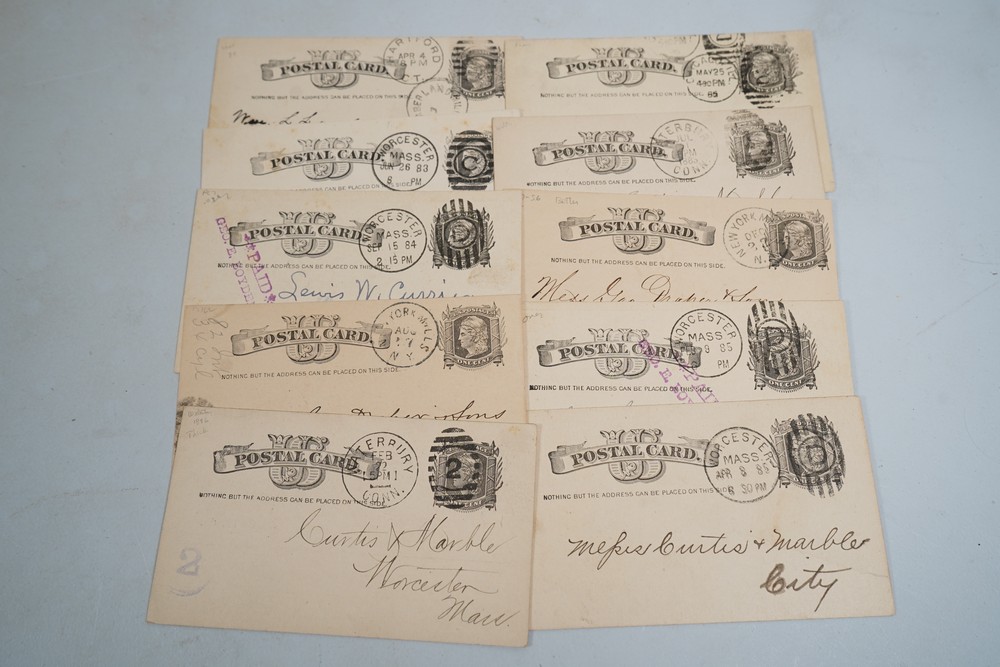 HARTFORD
APR 4
CT.
POSTAL CARD.
NOTHING BUT THE ADDRESS CAN BE PLACED
ONE CENT
POSTAL CARD.
NOTHING BUT THE ADDRESS CAN BE PLACED ON THIS SIDE.
MAY 25
4 30 PM
85
ONE CENT
POSTAL CARD.
WORCESTER
MASS.
JUN 26 83
8 PM
C
NOTHING BUT THE ADDRESS CAN BE PLACED
SIDE.
POSTAL CARD.
CONN.
NOTHING BUT THE ADDRESS CAN BE PLACED ON THIS SIDE.
ONE CENT
PAID
POSTAL CARD.
WORCESTER
MASS.
SEP 15 84
2 15 PM
NOTHING BUT THE ADDRESS CAN BE PLACED ON THIS SIDE.
Lewis W. Currier
POSTAL CARD.
NEW YORK MILLS
DEC
N.
NOTHING BUT THE ADDRESS CAN BE PLACED ON THIS SIDE.
ONE CENT
POSTAL CARD.
YORK MILLS
AUG
7
N.Y.
NOTHING BUT THE ADDRESS CAN BE PLACED ON THIS SIDE.
ONE CENT
Sons
POSTAL CARD.
WORCESTER
MASS
8 85
PM
NOTHING BUT THE ADDRESS CAN BE PLACED ON THIS SIDE.
ONE CENT
PAID
POSTAL CARD.
TERBURY
FEB
CONN.
2
NOTHING BUT THE ADDRESS CAN BE PLACED ON THIS SIDE
ONE CENT
Curtis & Marble
Worcester
Mass.
POSTAL CARD.
WORCESTER
MASS.
APR 8 85
8 30 PM
NOTHING BUT THE ADDRESS CAN BE PLACED ON THIS SIDE
ONE CENT
Messrs Curtis & Marble
City